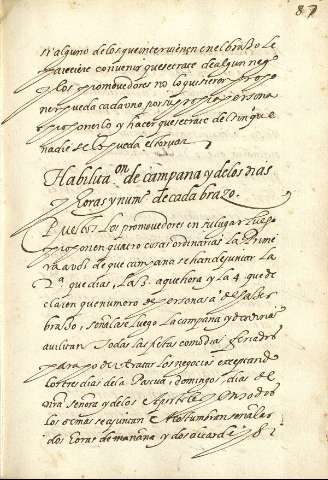 87
si alguno de los que intervienen en el braço le
pareciere convenir que se trate de algun neg.º
y los promovedores no lo quisieren propo
ner pueda cada uno por su propia persona
proponerlo y hacer que se trate del sin que
nadie se lo pueda estorvar
Habilitaᵒⁿ de campana y de los dias
y horas y num.º de cada brazo.
Puestos los promovedores en su lugar luego
proponen quatro cosas ordinarias la prime
ra a voz de que campana se han de juntar la
2.ª que dias, la 3. a que hora y la 4. que de
claren que numero de personas a de haber
braço, señalase luego la campana y
avilitan todas las fiestas como dias feriados
para poder tratar los negocios exceptando
los tres dias de la Pascua, domingos, dias de
nra señora y de los Apostoles
los demas se ajuntan Acostumbran señalar
dos horas de mañana y dos de tarde y